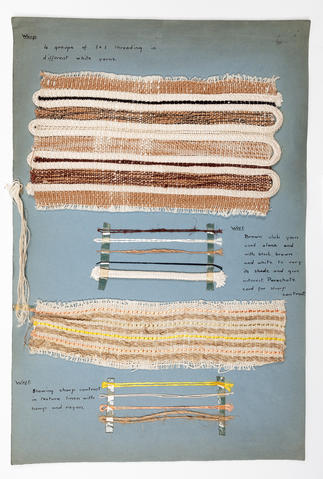 Warp
6 groups of 1x1 threading in
different white yarns.
Weft
Brown slub yarn
used alone and
with black brown
and white to vary
its shade and give
interest Parachute
cord for sharp
contrast
Weft
Showing sharp contrast
in texture linen with
hemp and rayon.